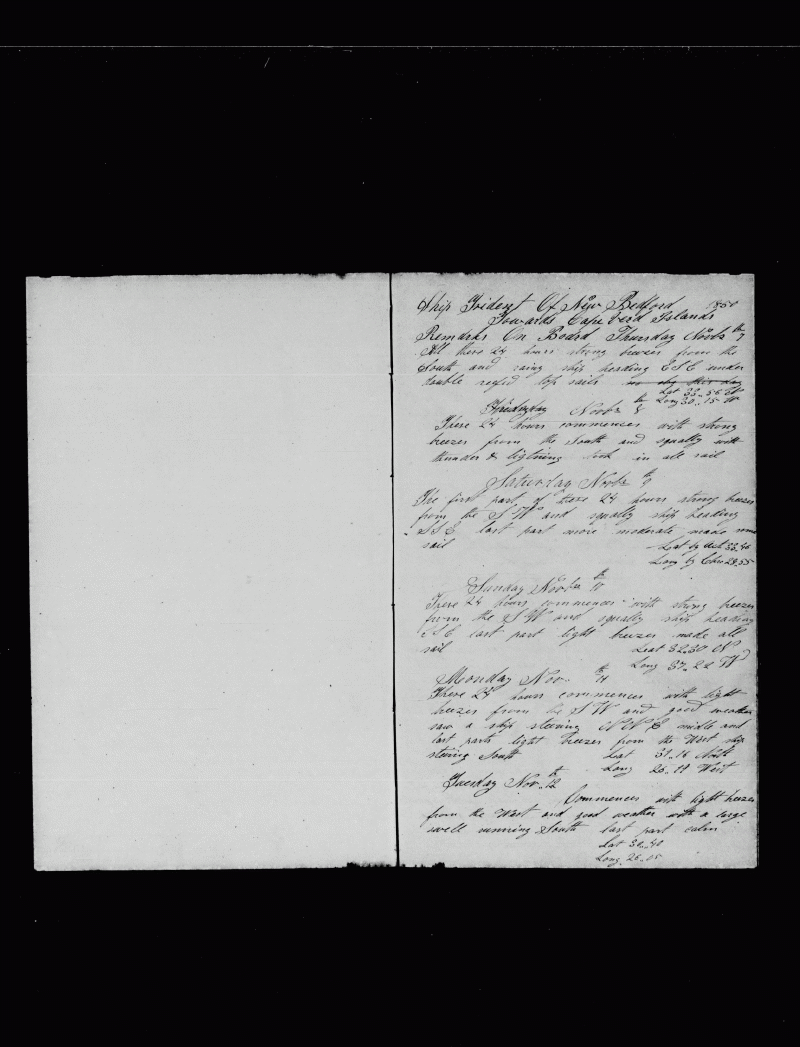 Ship Trident Of New Bedford 1850
Towards Cape Verd Islands
Remarks On Board Thursday Novbr 7th
All these 24 hours strong breezes from the
South and rainy ship heading ESE under
double reefed top sails no obs this day
Lat 33..56 N
Long 30..15 W
Friday Novbr 8th
These 24 hours commences with strong
breezes from the South and squally with
thunder & lightning took in all sail
Saturday Novbr 9th
The first part of these 24 hours strong breezes
from the S W and squally ship heading
SSE last part more moderate made some
sail
Lat by Act 33,46
Long by Chro 28,55
Sunday Novbr 10th
These 24 hours commences with strong breezes
from the S W and squally ship heading
SSE last part light breezes made all
sail
Lat 32.30 N
Long 27..22 W
Monday Nov. 11th
These 24 hours commences with light
breezes from the S W and good weather
saw a ship steering N N E middle and
last parts light breezes from the West ship
steering South Lat 31..14 North
Long 26..14 West
Tuesday Nov..12th
Commences with light breezes
from the West and good weather with a large
swell running South last part calm
Lat 30..40
Long. 26..05